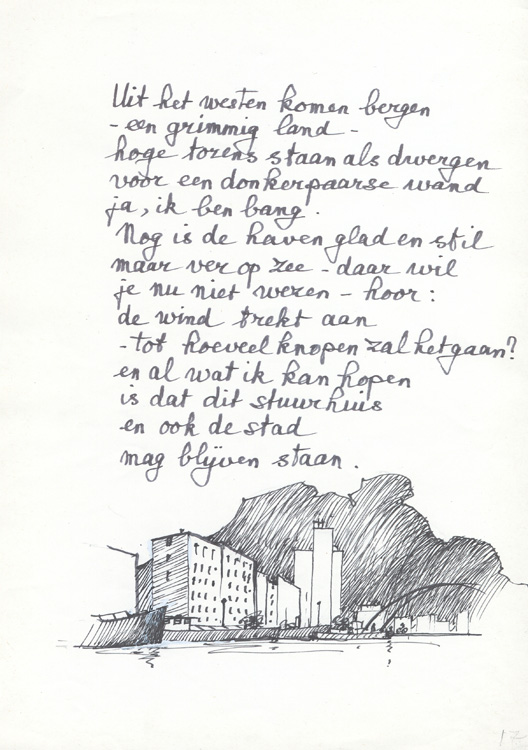 Uit het westen komen bergen
- een grimmig land -
hoge torens staan als dwergen
voor een donkerpaarse wand
ja, ik ben bang.
Nog is de haven glad en stil
maar ver op zee - daar wil
je nu niet wezen - hoor:
de wind trekt aan
- tot hoeveel knopen zal het gaan?
en al wat ik kan hopen
is dat dit stuurhuis
en ook de stad
mag blijven staan.
17